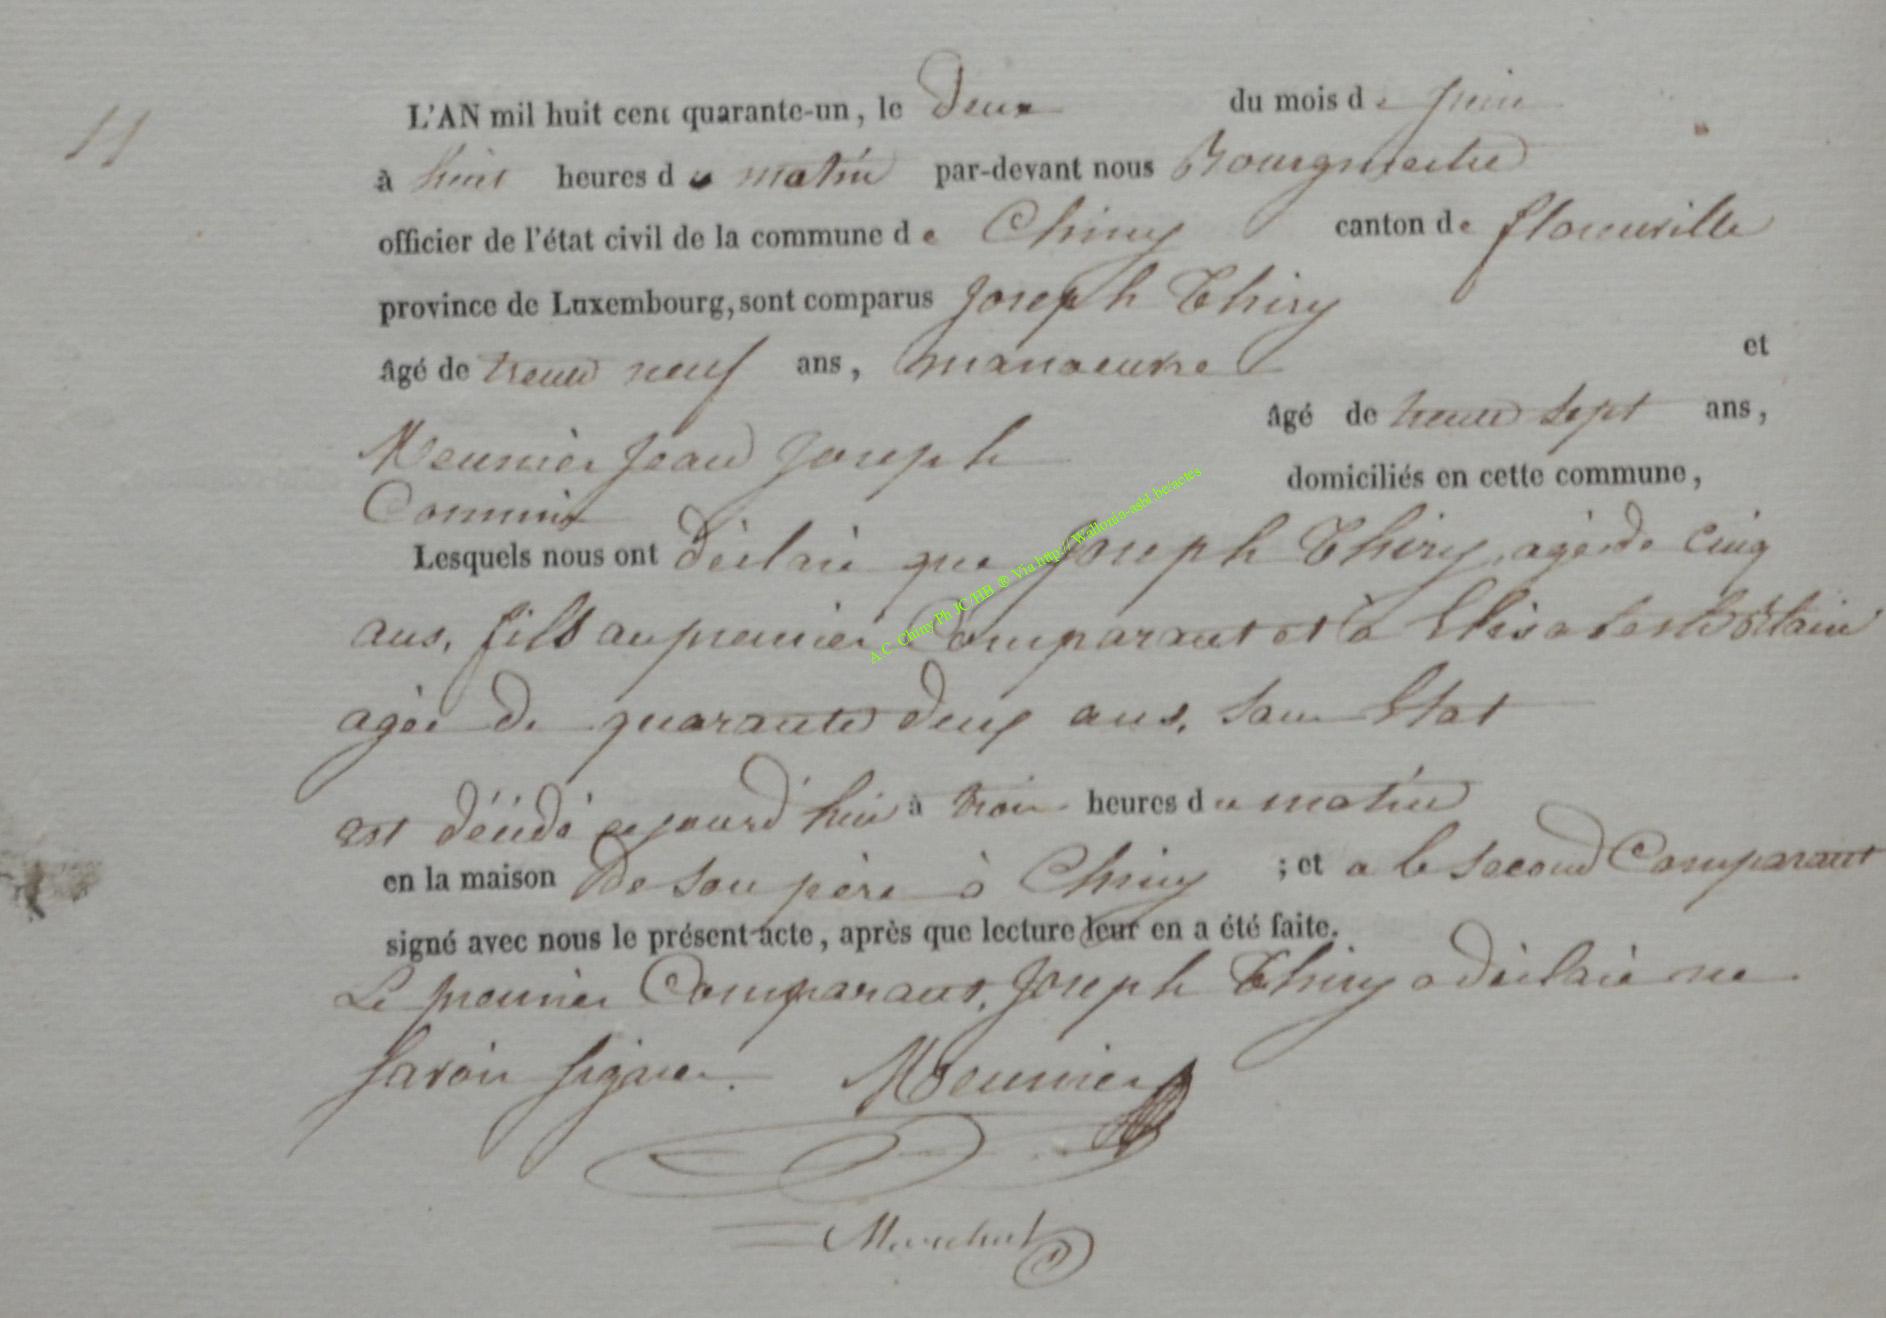 11
L'AN mil huit cent quarante-un, le Deux du mois de juin
à huit heures du matin par-devant nous Bourgmestre
officier de l'état civil de la commune de Chiny canton de florenville
province de Luxembourg, sont comparus Joseph Thiry
âgé de trente neuf ans, manoeuvre et
Meunier Jean Joseph âgé de trente sept ans,
Commis domiciliés en cette commune,
Lesquels nous ont déclaré que Joseph Thiry, agé de cinq
ans, fils au premier Comparant et à Elisabeth
agée de quarante deux ans, sans Etat
est décédé cejourd'hui à trois heures du matin
en la maison de son père à Chiny ; et a le second Comparant
signé avec nous le présent acte, après que lecture leur en a été faite.
Le premier Comparant, Joseph Thiry a déclaré ne
savoir signer. Meunier
A.C Chiny Ph JC/HB ® Via http:// Wallonia-asbl.be/actes